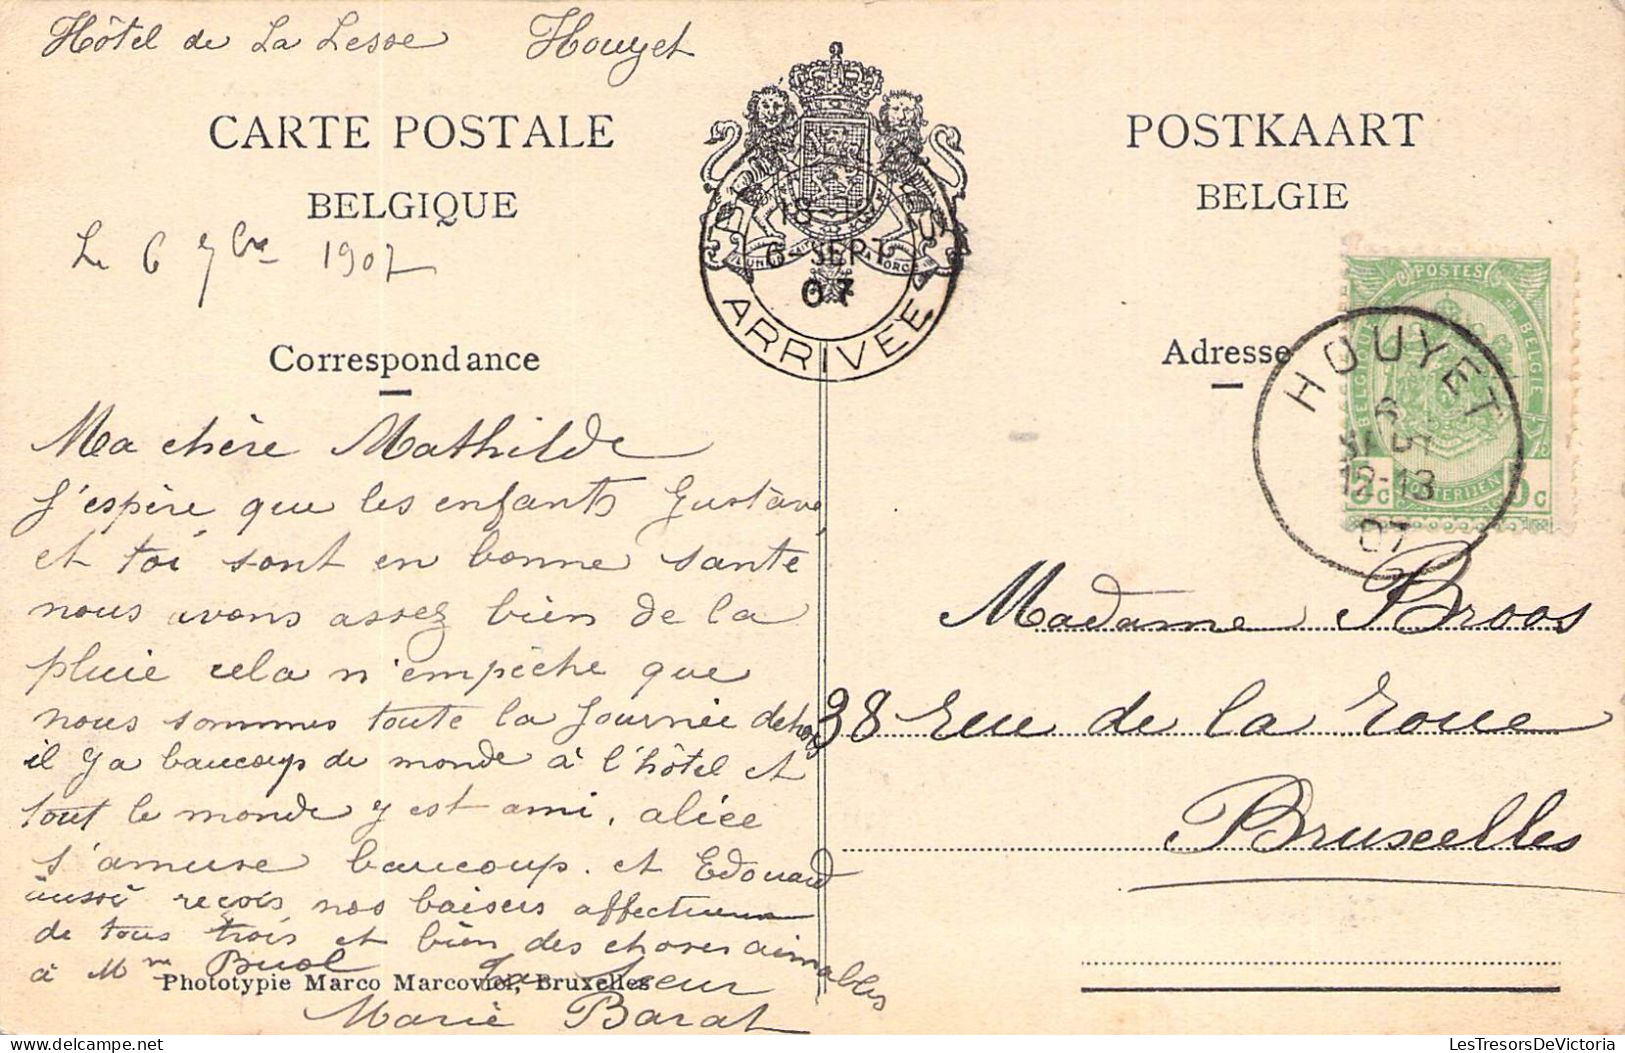 Hôtel de La Lesse Houyet
CARTE POSTALE
BELGIQUE
Le 6 7bre 1907
Correspondance
Ma chère Mathilde
J'espère que les enfants Gustave,
et toi sont en bonne santé
nous avons assez bien de la
pluie cela n'empèche que
nous sommes toute la journée dehors
il y a baucoup de monde à l'hôtel et
tout le monde y est ami, alice
s'amuse baucoup. et Edouard
aussi reçois nos baisers affectueux
de tous trois et bien des choses aimables
à Mme Buol
Ta Sœur
Marie Barat
Phototypie Marco Marcovici, Bruxelles
6 SEPT
07
ARRIVEE
POSTKAART
BELGIE
Adresse
POSTES
BELGIQUE
BELGIE
5c 5c
HOUYET
6
SEPT
12-13
07
Madame Broos
38 rue de la roue
Bruxelles
LesTresorsDeVictoria
delcampe.net